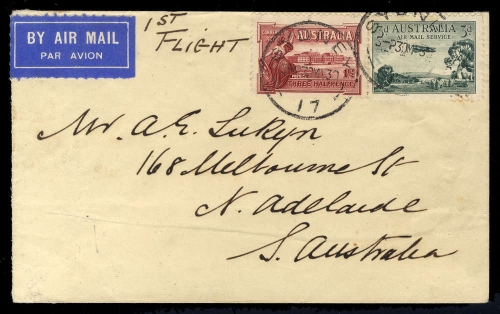 BY AIR MAIL
PAR AVION
1ST
FLIGHT
AUSTRALIA
THREE HALFPENCE
3d AUSTRALIA 3d
AIR MAIL SERVICE
SYDNEY
17
Mr. A. E. Lukyn
168 Melbourne St
N. Adelaide
S. Australia